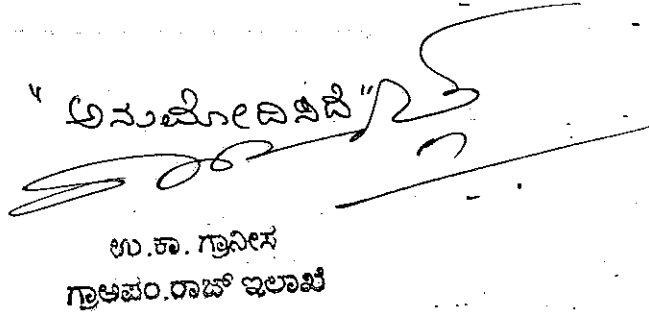 "ಅನುಮೋದಿಸಿದೆ"
ಉ.ಕಾ. ಗ್ರಾನೀಸ
ಗ್ರಾಅಪಂ.ರಾಜ್ ಇಲಾಖೆ